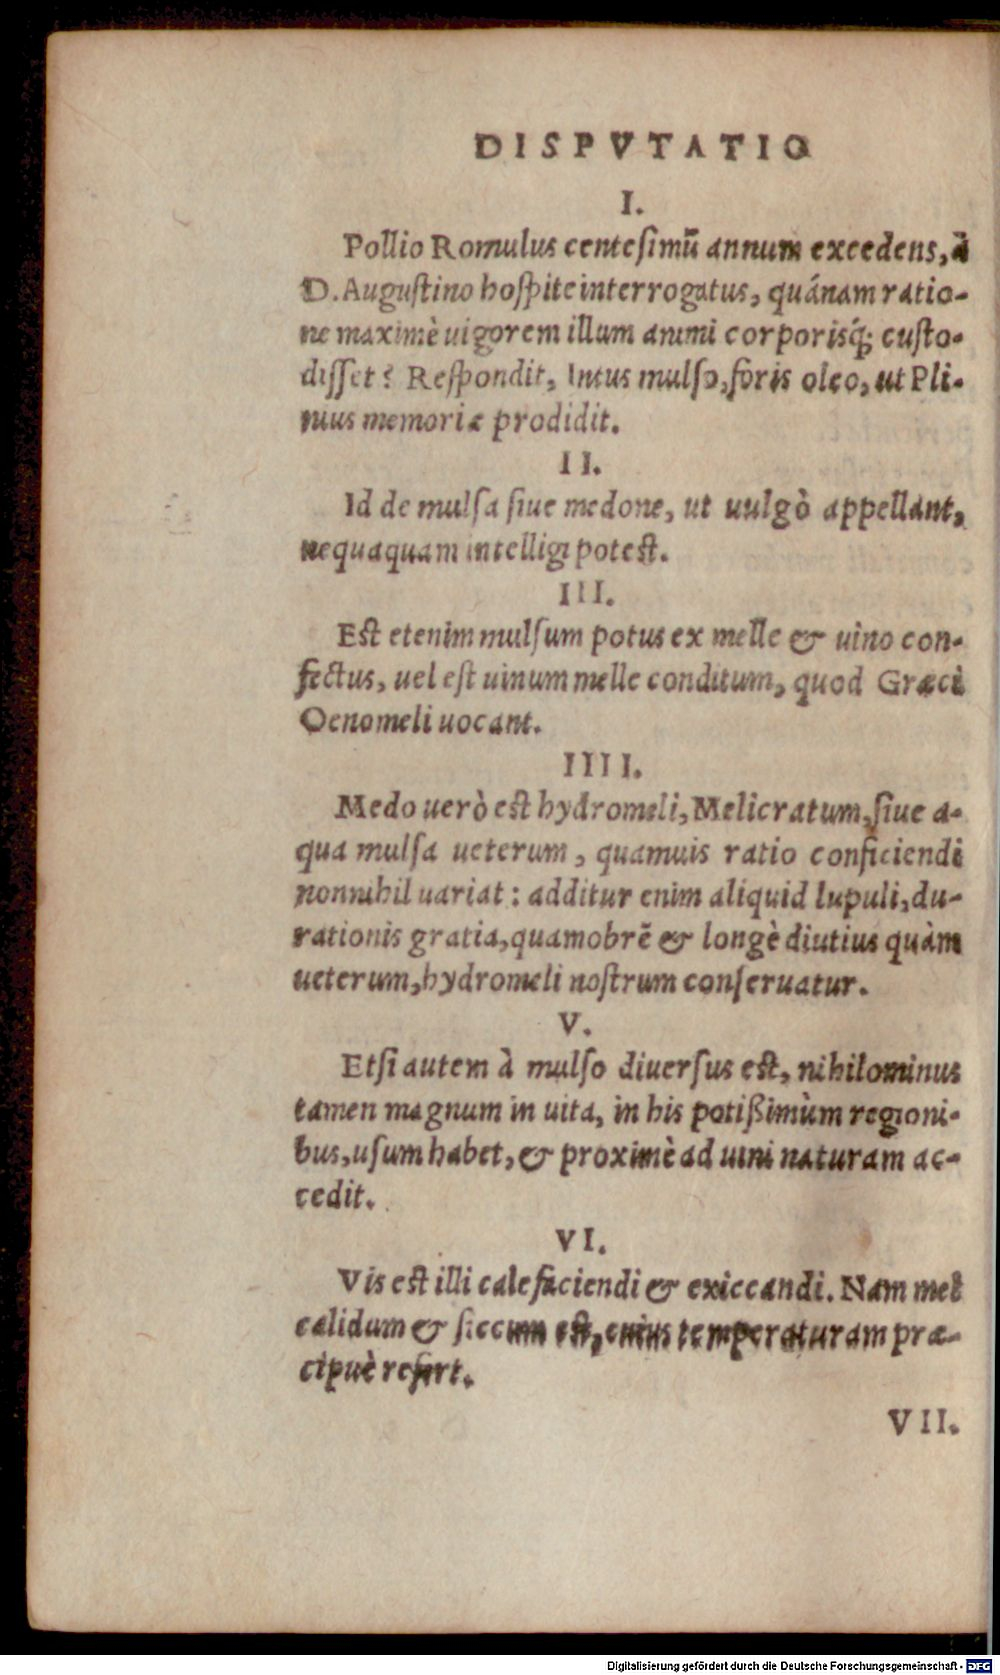 DISPVTATIO
I.
Pollio Romulus centesimū annum excedens, à
D. Augustino hospite interrogatus, quánam ratio-
ne maximè uigorem illum animi corporisq́; custo-
disset? Respondit, Intus mulso, foris oleo, ut Pli-
nius memoriæ prodidit.
II.
Id de mulsa siue medone, ut uulgò appellant,
nequaquam intelligi potest.
III.
Est etenim mulsum potus ex melle & uino con-
fectus, uel est uinum melle conditum, quod Græci
Oenomeli uocant.
IIII.
Medo uerò est hydromeli, Melicratum, siue a-
qua mulsa ueterum, quamuis ratio conficiendi
nonnihil uariat: additur enim aliquid lupuli, du-
rationis gratia, quamobrē & longè diutius quàm
ueterum, hydromeli nostrum conseruatur.
V.
Etsi autem à mulso diuersus est, nihilominus
tamen magnum in uita, in his potißimùm regioni-
bus, usum habet, & proximè ad uini naturam ac-
cedit.
VI.
Vis est illi calefaciendi & exiccandi. Nam mel
calidum & siccum est, cuius temperaturam præ-
cipuè refert.
VII.
Digitalisierung gefördert durch die Deutsche Forschungsgemeinschaft - DFG